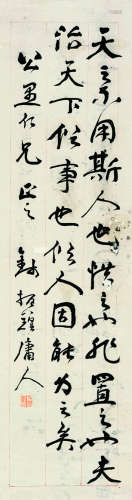 天之不用斯人也惜之如死置之如夫
治天下後事也後人固能为之矣
公愚仁兄 正之
钱振鍠庸人